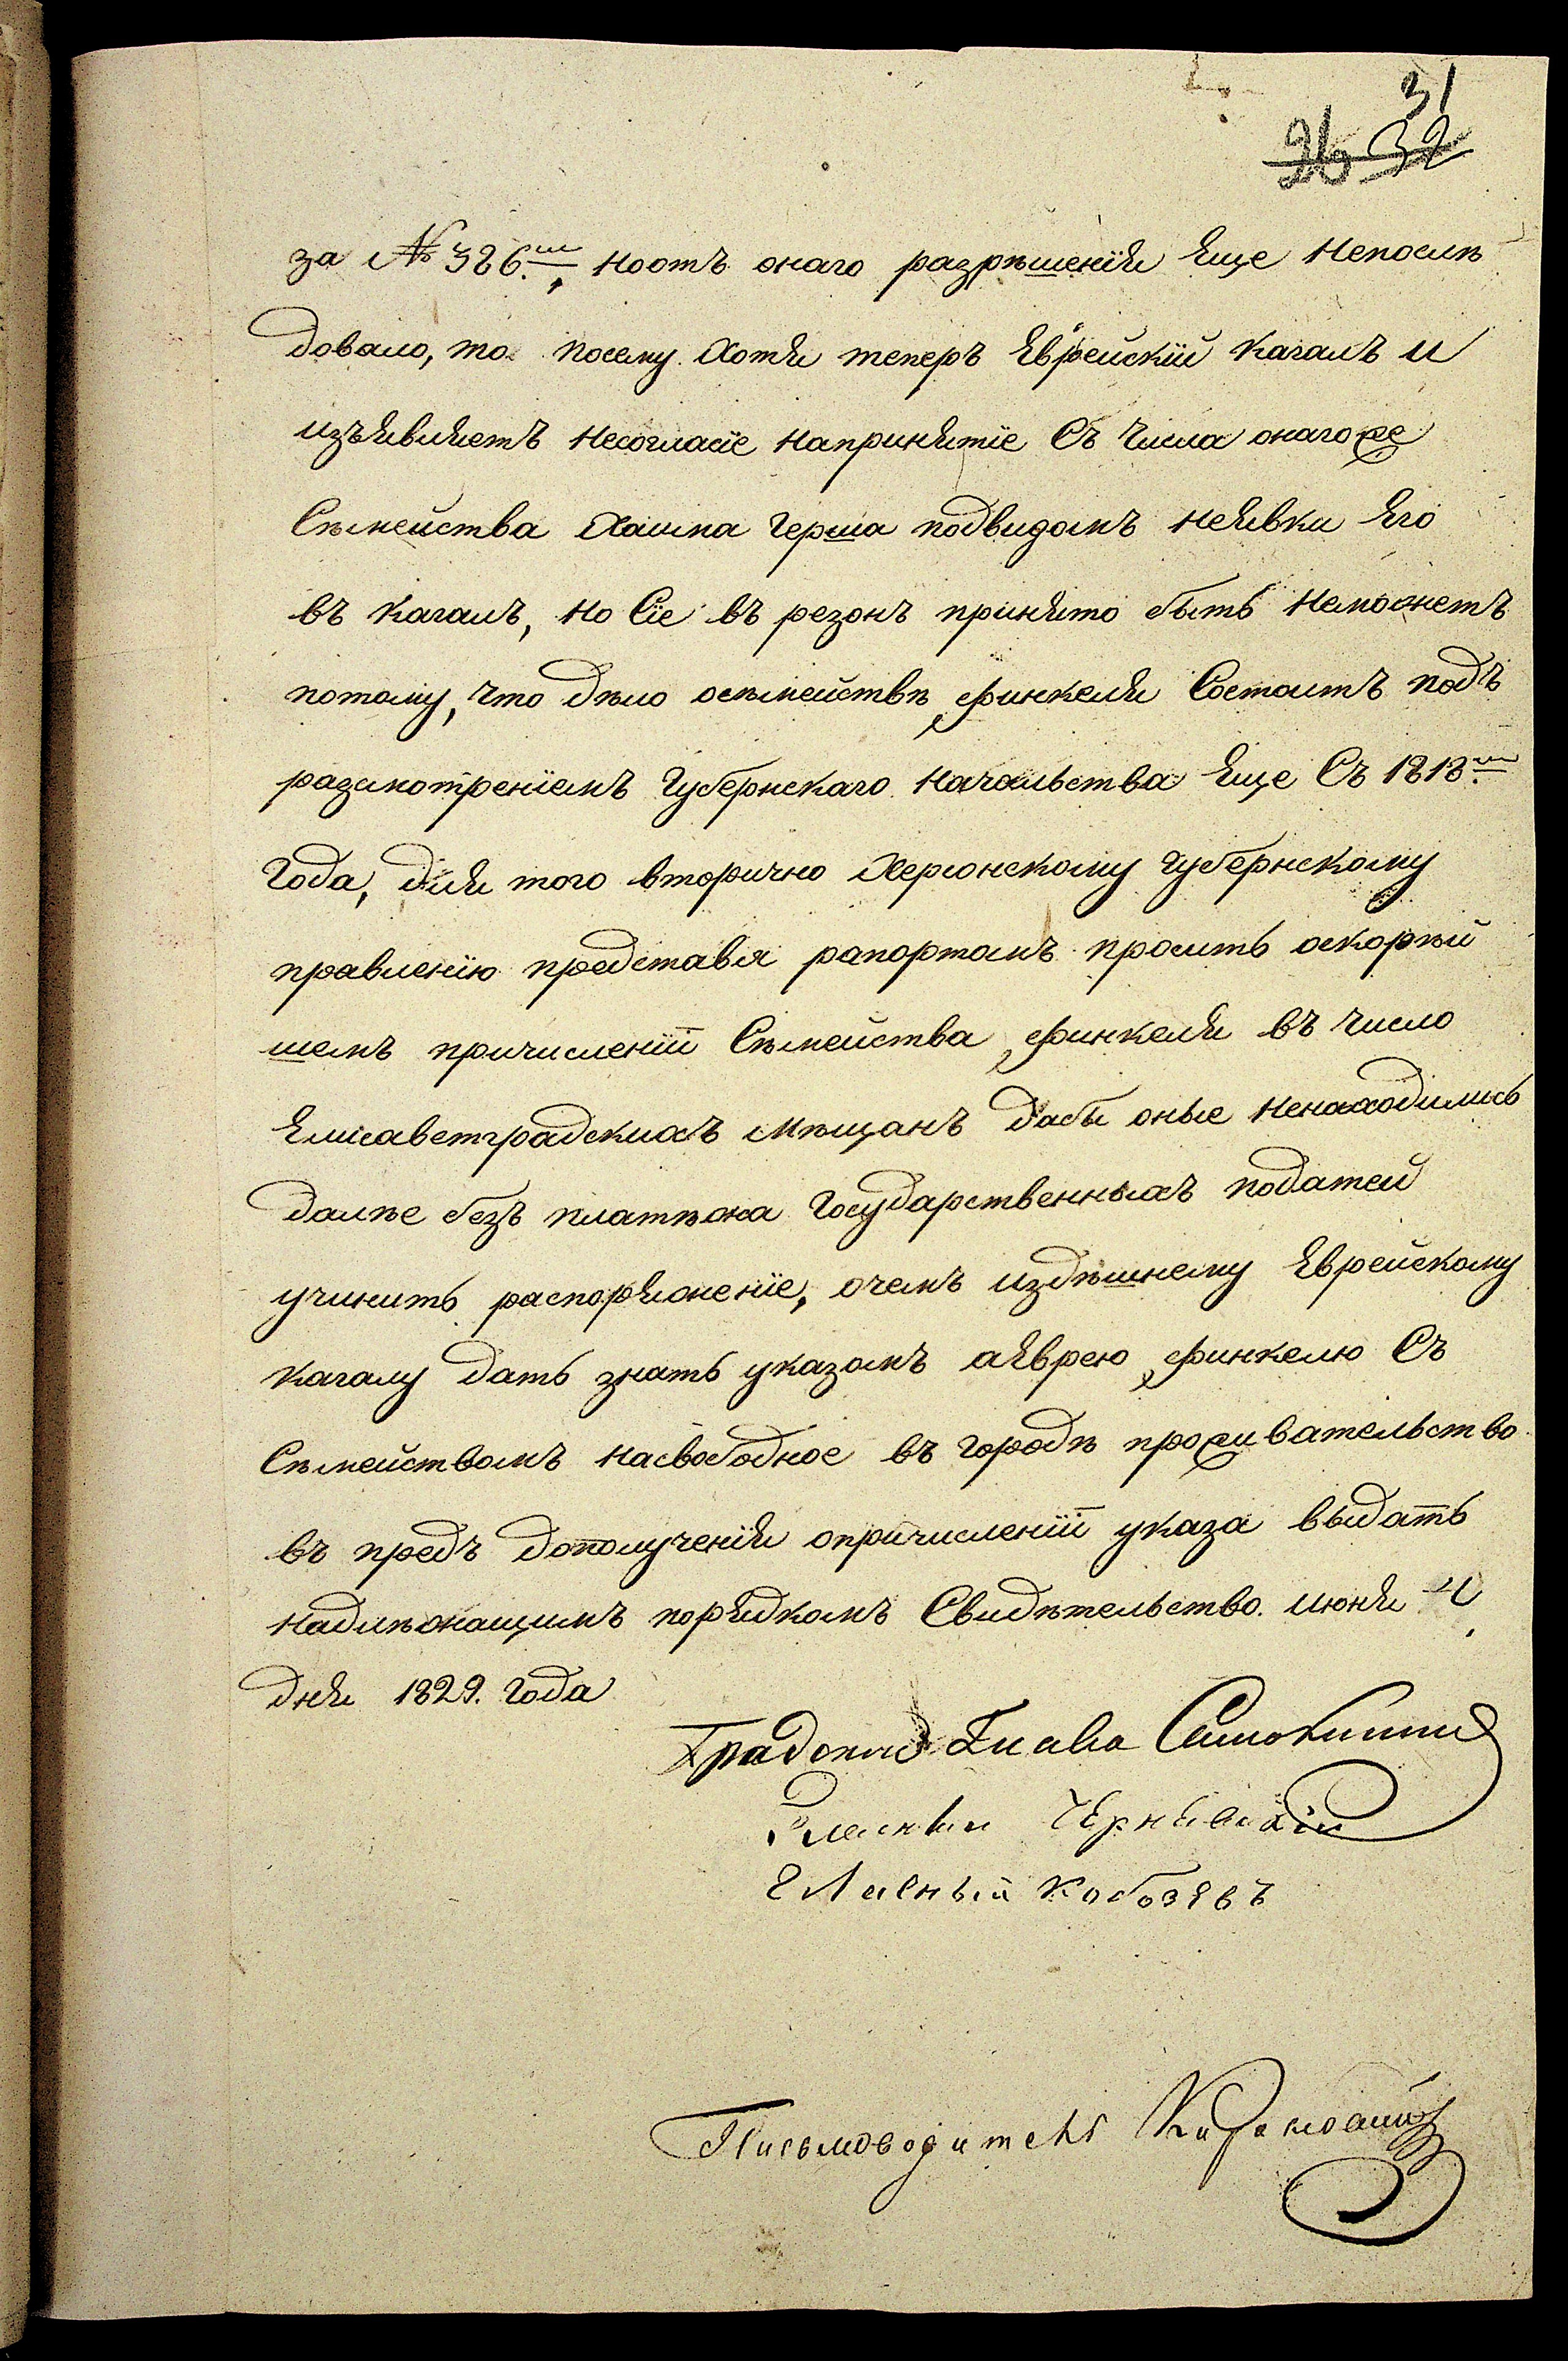 31
26 32
за № 326.м, ноотъ онаго разрѣшенїя Еще Непослѣ
довало, то посему хотя теперъ Еврейскїй кагалъ и
изъявляетъ Несогласїе Напринятїе Съ Числа онагоже
Сѣмейства Хаима Герша подвидомъ неявки Его
въ кагалъ, Но Сїе въ резонъ принято быть Неможетъ
потому, что дѣло осѣмействѣ Финкеля Состоитъ подъ
разсмотренїемъ Губернскаго Начальства Еще Съ 1818.го
Года, для того вторично Херсонскому Губернскому
правленїю представя рапортомъ просить оскорѣй
шемъ причисленїи Сѣмейства Финкеля въ число
Елисаветградскихъ Мѣщанъ дабы оные Ненаходились
далѣе безъ платѣжа Государственныхъ податей
учинить распоряженїе, очемъ издѣшнему Еврейскому
Кагалу дать знать указомъ аЕврею Финкелю Съ
Сѣмействомъ Насвободное въ городѣ проживательство
въ предъ дополученїя опричисленїи указа выдать
Надлѣжащимъ порядкомъ Свидѣтельство. Июня 4,
дня 1829. Года
Глава
Гласный Чернявскїй
Гласный Кобозевъ
Письмоводитель